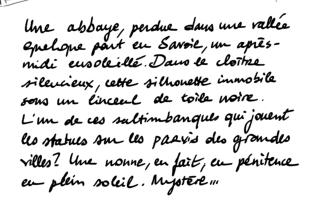 Une abbaye, perdue dans une vallée
quelque part en Savoie, un après-
midi ensoleillé. Dans le cloître
silencieux, cette silhouette immobile
sous un linceul de toile noire.
L'un de ces saltimbanques qui jouent
les statues sur les parvis des grandes
villes? Une nonne, en fait, en pénitence
en plein soleil. Mystère...